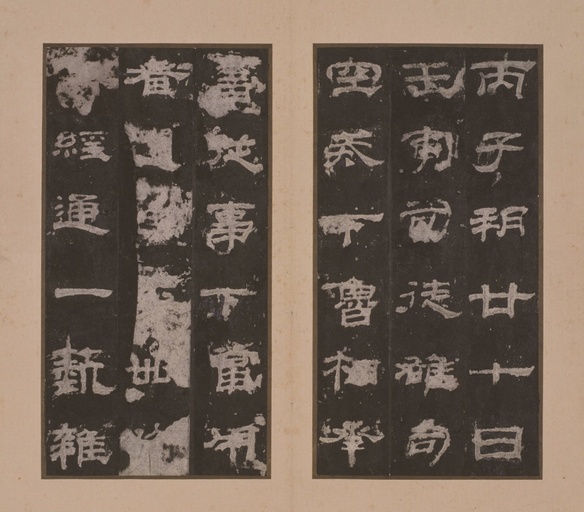 丙子朔廿七日
壬寅司徒雄司
空戒下魯相承
書從事下當用
者選卌以
經通一藝雜